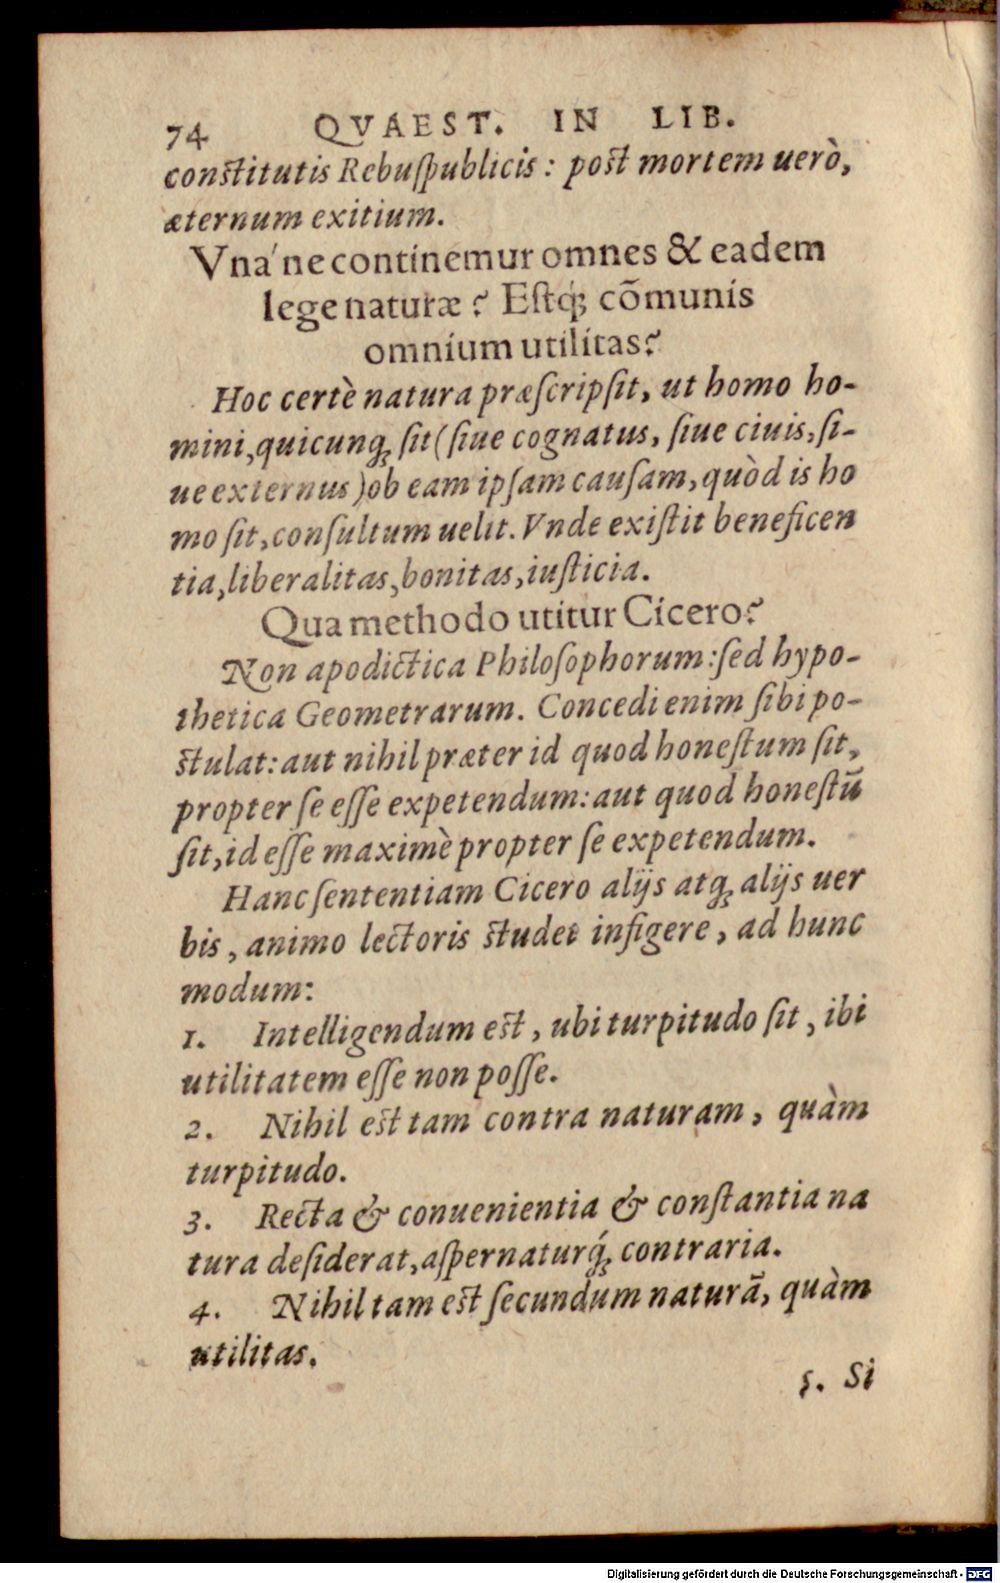 74 QVAEST. IN LIB.
conſtitutis Rebuſpublicis: poſt mortem uerò,
æternum exitium.
Vna'ne continemur omnes & eadem
lege naturæ? Eſtq́; cõmunis
omnium utilitas?
Hoc certè natura præſcripſit, ut homo ho-
mini, quicunq; ſit (ſiue cognatus, ſiue ciuis, ſi-
ue externus) ob eam ipſam cauſam, quòd is ho
mo ſit, conſultum uelit. Vnde exiſtit beneficen
tia, liberalitas, bonitas, iuſticia.
Qua methodo utitur Cicero?
Non apodictica Philoſophorum: ſed hypo-
thetica Geometrarum. Concedi enim ſibi po-
ſtulat: aut nihil præter id quod honeſtum ſit,
propter ſe eſſe expetendum: aut quod honeſtũ
ſit, id eſſe maximè propter ſe expetendum.
Hanc ſententiam Cicero alijs atq; alijs uer
bis, animo lectoris ſtudet infigere, ad hunc
modum:
1. Intelligendum eſt, ubi turpitudo ſit, ibi
utilitatem eſſe non poſſe.
2. Nihil eſt tam contra naturam, quàm
turpitudo.
3. Recta & conuenientia & conſtantia na
tura deſiderat, aſpernaturq́; contraria.
4. Nihil tam eſt ſecundum naturã, quàm
utilitas.
5. Si
Digitalisierung gefördert durch die Deutsche Forschungsgemeinschaft - DFG